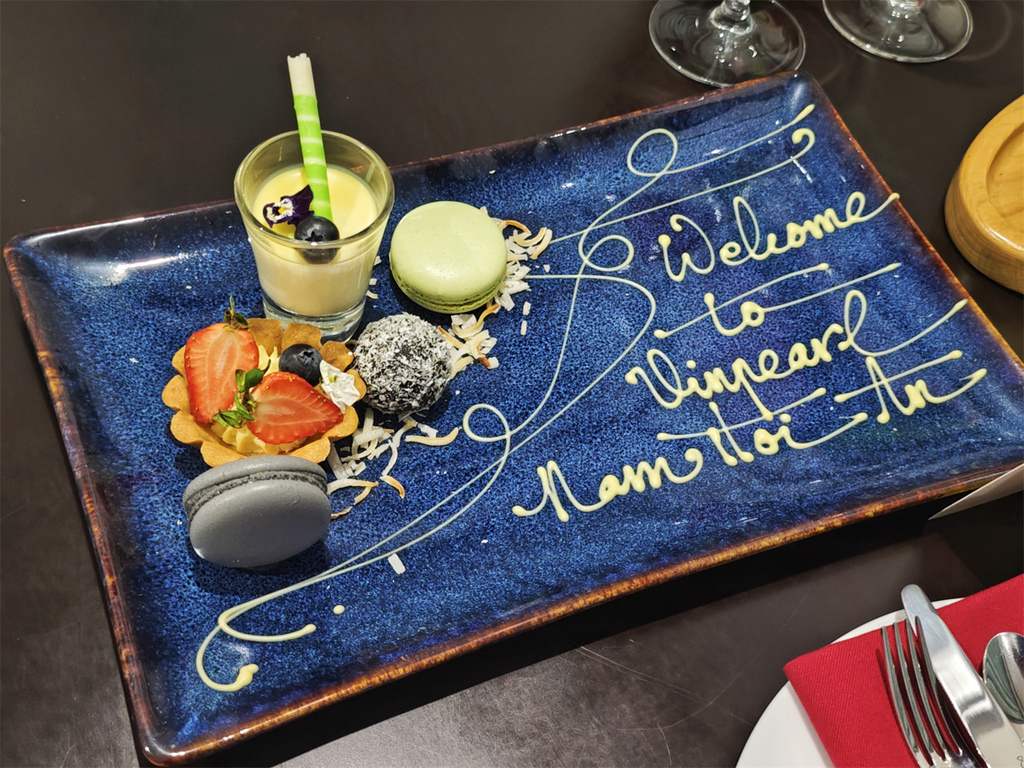 Welcome
to
Vinpearl
Nam Hoi An